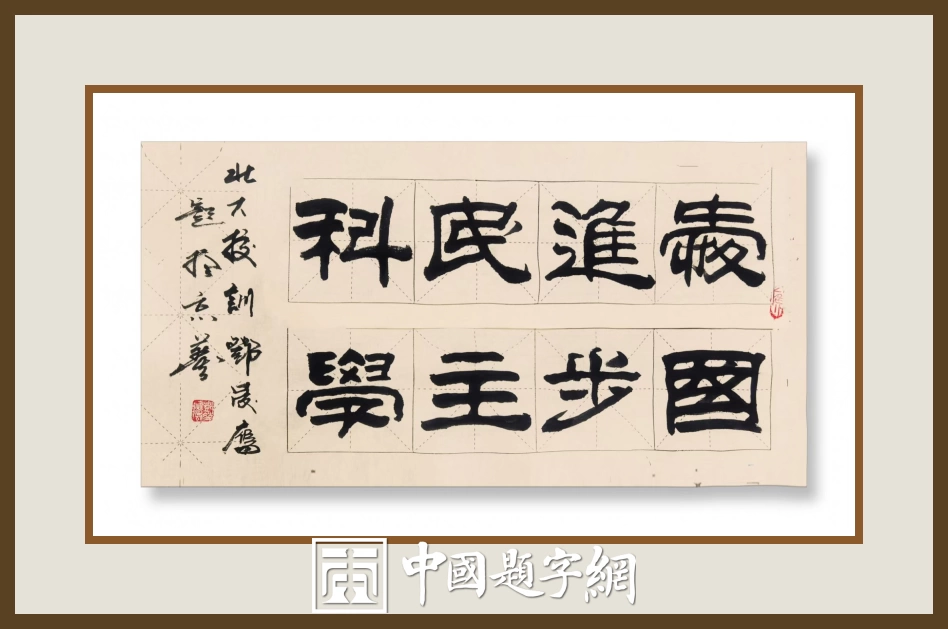 愛國
進步
民主
科學
北大校訓
題於京華
中國題字網